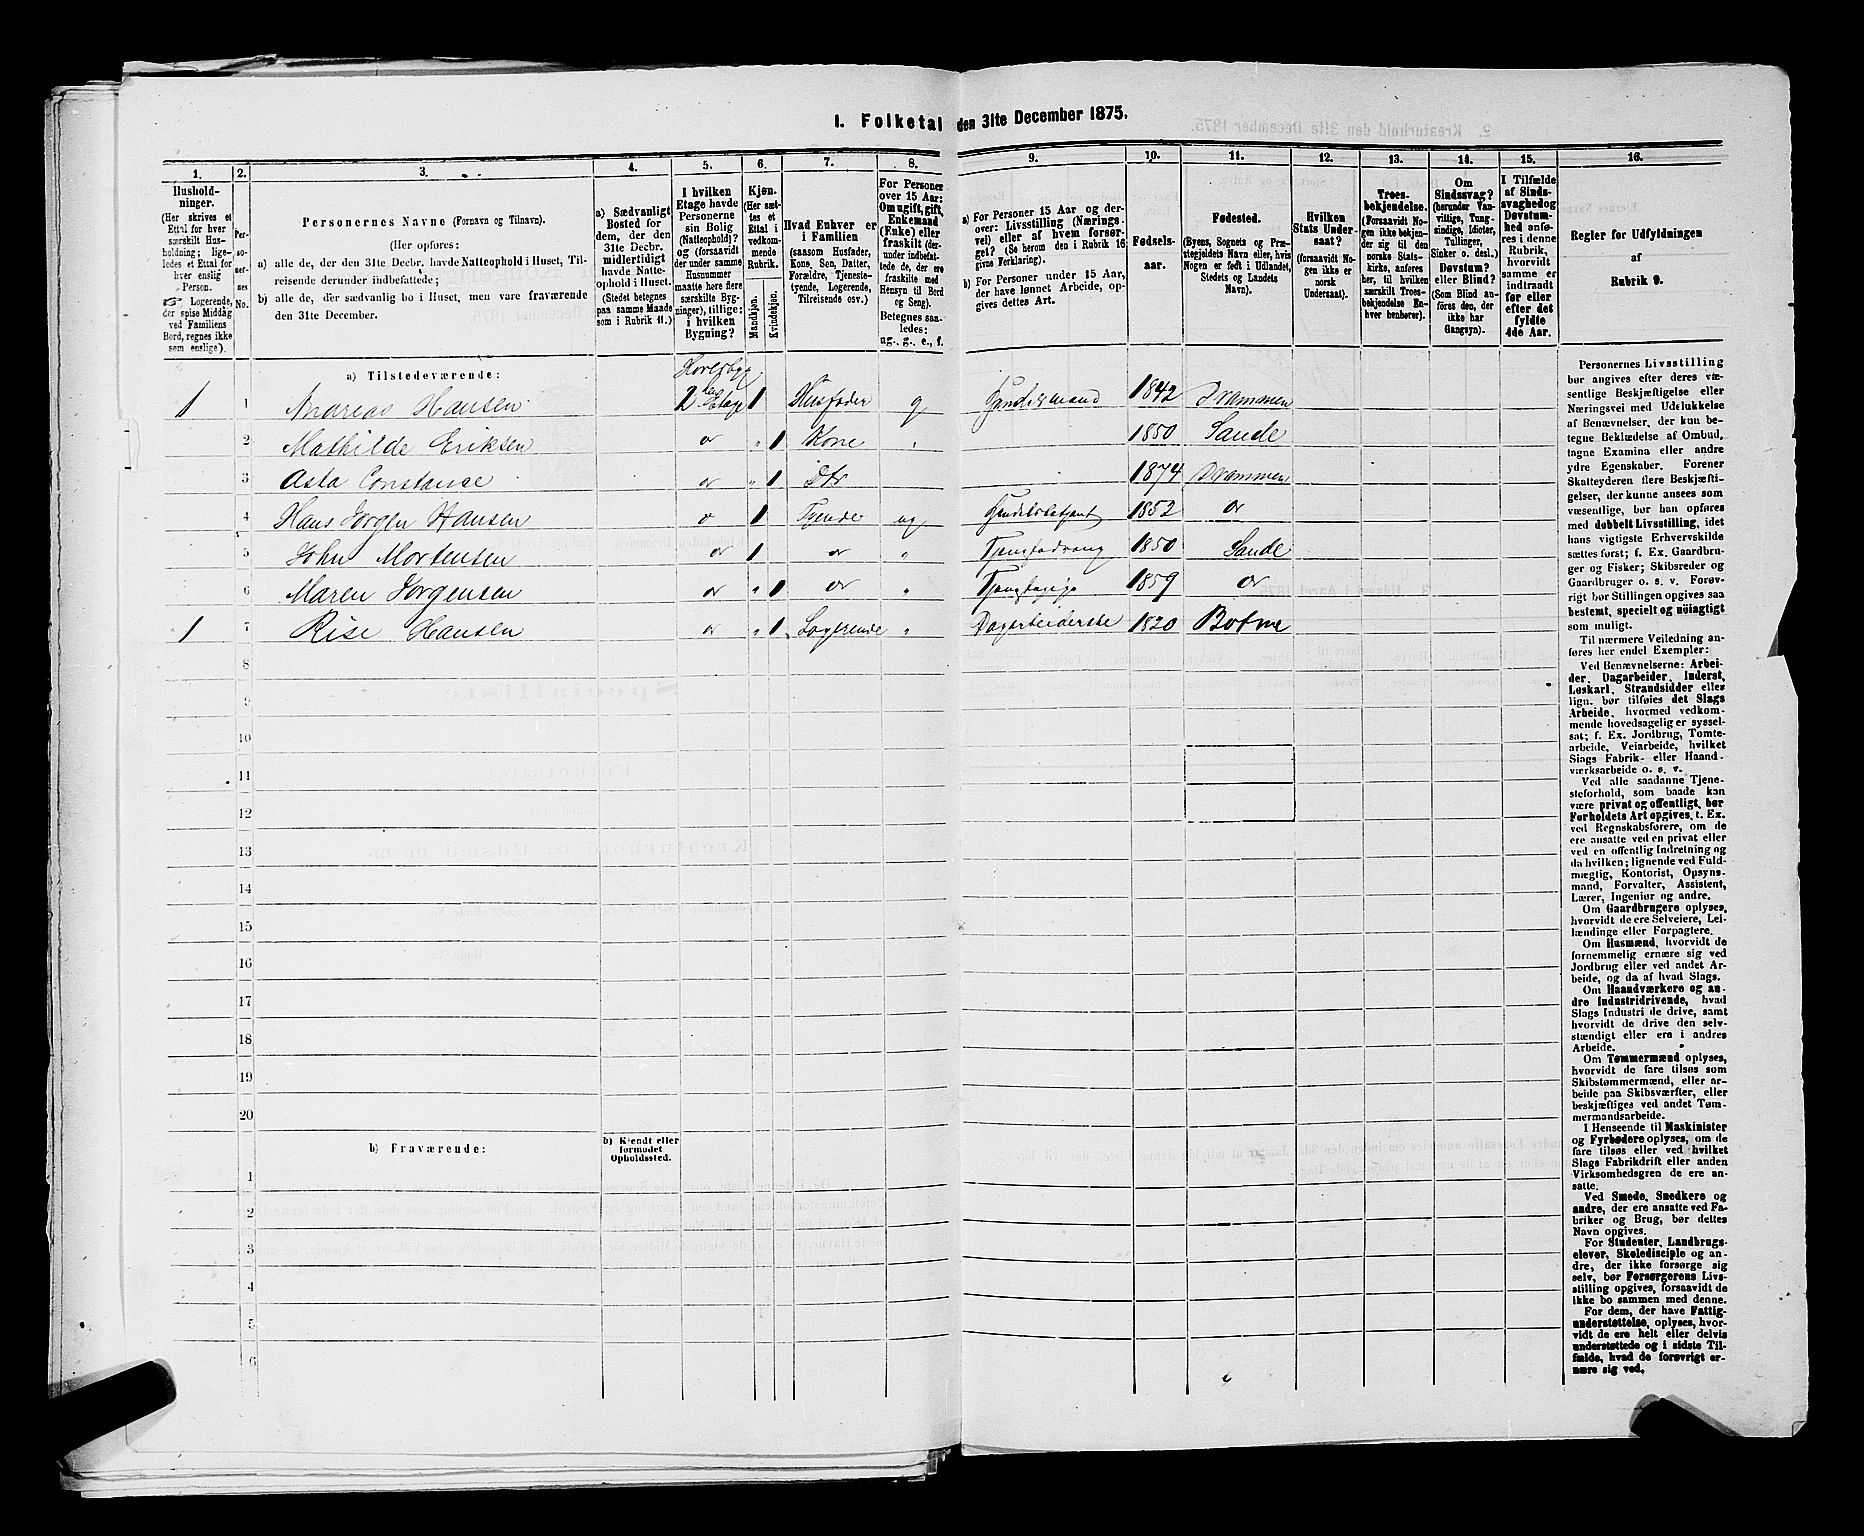 I. Folketal den 31te December 1875.
1. 2. 3. 4. 5. 6. 7. 8. 9. 10. 11. 12. 13. 14. 15. 16.
Hushold-
ninger.
(Her skrives et
Ettal for hver
særskilt Hus-
holdning; lige-
ledes et Ettal for
hver enslig
Person.
☞ Logerende,
der spise Middag
ved Familiens
Bord, regnes ikke
som enslige).
Per-
so-
ner-
nes
No.
Personernes Navne (Fornavn og Tilnavn).
(Her opføres:
a) alle de, der den 31te Decbr. havde Natteophold i Huset, Til-
reisende derunder indbefattede;
b) alle de, der sædvanlig bo i Huset, men vare fraværende
den 31te December.
a) Sædvanligt
Bosted for
dem, der den
31te Decbr.
midlertidigt
havde Natte-
ophold i Huset.
(Stedet betegnes
paa samme Maade
som i Rubrik 11.)
I hvilken
Etage havde
Personerne
sin Bolig
(Natteophold)?
og (forsaavidt
der under samme
Husnummer
maatte høre flere
særskilte Byg-
ninger), tillige:
i hvilken
Bygning?
Kjøn.
(Her sæt-
tes et
Ettal i
vedkom-
mende
Rubrik.
Mandkjøn.
Kvindekjøn.
Hvad Enhver er
i Familien
(saasom Husfader,
Kone, Søn, Datter,
Forældre, Tjeneste-
tyende, Logerende,
Tilreisende osv.)
For Personer
over 15 Aar:
Om ugift, gift,
Enkemand
(Enke) eller
fraskilt (der-
under indbefat-
tede de, der ere
fraskilte med
Hensyn til Bord
og Seng).
Betegnes saa-
ledes:
ug., g., e., f.
a) For Personer 15 Aar og der-
over: Livsstilling (Nærings-
vei) eller af hvem forsør-
get? (Se herom den i Rubrik 16
givne Forklaring).
b) For Personer under 15 Aar,
der have lønnet Arbeide, op-
gives dettes Art.
Fødsels-
aar.
Fødested.
(Byens, Sognets og Præ-
stegjeldets Navn eller, hvis
Nogen er født i Udlandet,
Stedets og Landets
Navn).
Hvilken
Stats Under-
saat?
(forsaavidt No-
gen ikke er
norsk
Undersaat).
Troes-
bekjendelse.
(Forsaavidt No-
gen ikke bekjen-
der sig til den
norske Stats-
kirke, anføres
her, til hvilken
særskilt Troes-
bekjendelse En-
hver benhører).
Om
Sindssvag?
(herunder Van-
vittige, Tung-
sindige, Idioter,
Tullinger,
Sinker o. desl.)
Døvstum?
eller Blind?
(Som Blind an-
føres den, der
ikke har
Gangsyn).
I Tilfælde
af Sinds-
svaghed og
Døvstum-
hed anfø-
res i denne
Rubrik,
hvorvidt
samme er
indtraadt
før eller
efter det
fyldte
4de Aar.
Regler for Udfyldningen
af
Rubrik 9.
a) Tilstedeværende:
1 1 Andreas Hansen 2 Etage 1 Husfader g Handelsmand 1842 Drammen
2 Mathilde Eriksen " 1 Kone " 1850 Sande
3 Asta Constanse " 1 Dtr 1874 Drammen
4 Hans Jørgen Hansen 1 Tyende ug Handelsbetjent 1852
5 John Mortensen 1 " 1850 Sande
6 Maren Jørgensen " 1 " Tjenestepige 1859
1 7 Rise Hansen " 1 Logerende " Dagarbeiderske 1820 Botne
8
9
10
11
12
13
14
15
16
17
18
19
20
b) Fraværende:
b) Kjendt eller
formodet
Opholdssted.
1
2
3
4
5
6
Personernes Livsstilling
bør angives efter deres væ-
sentlige Beskjæftigelse eller
Næringsvei med Udelukkelse
af Benævnelser, der kun be-
tegne Beklædelse af Ombud,
tagne Examina eller andre
ydre Egenskaber. Forener
Skatteyderen flere Beskjæfti-
gelser, der kunne ansees som
væsentlige, bør han opføres
med dobbelt Livsstilling, idet
hans vigtigste Erhvervskilde
sættes først; f. Ex. Gaardbru-
ger og Fisker; Skibsreder og
Gaardbruger o. s. v. Forøv-
rigt bør Stillingen opgives saa
bestemt, specielt og nøiagtigt
som muligt.
Til nærmere Veiledning an-
føres her endel Exempler:
Ved Benævnelserne: Arbei-
der, Dagarbeider, Inderst,
Løskarl, Strandsidder eller
lign. bør tilføies det Slags
Arbeide, hvormed vedkom-
mende hovedsagelig er syssel-
sat; f. Ex. Jordbrug, Tomte-
arbeide, Veiarbeide, hvilket
Slags Fabrik- eller Haand-
værksarbeide o. s. v.
Ved alle saadanne Tjene-
steforhold, som baade kan
være privat og offentligt, bør
Forholdets Art opgives, t. Ex.
ved Regnskabsførere, om de
ere ansatte ved en privat eller
ved en offentlig Indretning og
da hvilken; lignende ved Fuld-
mægtig, Kontorist, Opsyns-
mand, Forvalter, Assistent,
Lærer, Ingeniør og andre.
Om Gaardbrugere oplyses,
hvorvidt de ere Selveiere, Lei-
lændinge eller Forpagtere.
Om Husmænd, hvorvidt de
fornemmelig ernære sig ved
Jordbrug eller ved andet Ar-
beide, og da af hvad Slags.
Om Haandværkere og an-
dre Industridrivende, hvad
Slags Industri de drive, samt
hvorvidt de drive den selv-
stændigt eller ere i andres
Arbeide.
Om Tømmermænd oplyses,
hvorvidt de fare tilsøs som
Skibstømmermænd, eller ar-
beide paa Skibsværfter, eller
beskjæftiges ved andet Tøm-
mermandsarbeide.
I Henseende til Maskinister
og Fyrbødere oplyses, om de
fare tilsøs eller ved hvilket
Slags Fabrikdrift eller anden
Virksomhedsgren de ere an-
satte.
Ved Smede, Snedkere og
andre, der ere ansatte ved Fa-
briker og Brug, bør dettes
Navn opgives.
For Studenter, Landbrugs-
elever, Skoledisciple og an-
dre, der ikke forsørge sig
selv, bør Forsørgerens Livs-
stilling opgives, forsaavidt de
ikke bo sammen med denne.
For dem, der have Fattig-
understøttelse, oplyses, hvor-
vidt de ere helt eller delvis
understøttede og i sidste Til-
fælde, hvad de forøvrigt er-
nære sig ved.